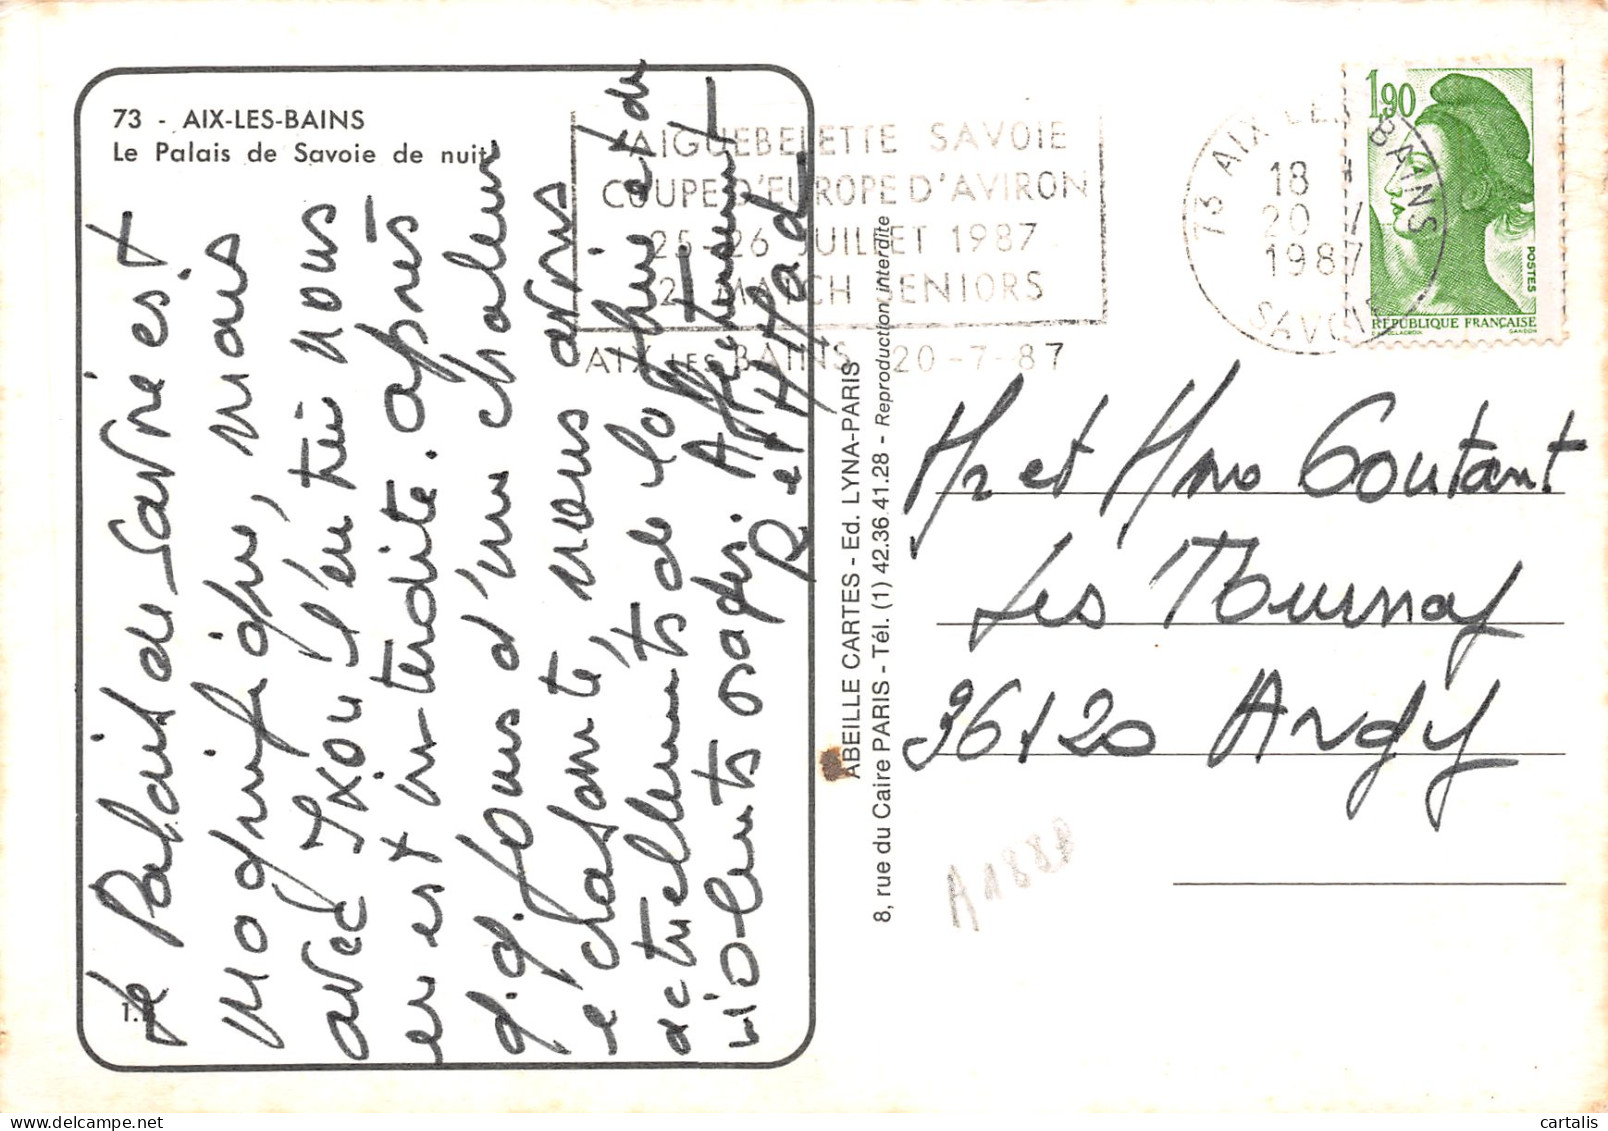 73 - AIX-LES-BAINS
Le Palais de Savoie de nuit
Le Palais de Savoie est
magnifique, mais
avec l'entrée nous
en est interdite. après
q.q. jours d'une chaleur
échasante, nous avons
actuellement de la pluie et de
violents orages. Affectueusement
R et H Had
1.
ABEILLE CARTES - Ed. LYNA-PARIS
8, rue du Caire PARIS - Tél. (1) 42.36.41.28 - Reproduction interdite
AIGUEBELETTE SAVOIE
COUPE D'EUROPE D'AVIRON
25-26 JUILLET 1987
2 MATCH SENIORS
AIX LES BAINS 20-7-87
73 AIX LES BAINS
18 H
20 -7
1987
SAVOIE
1,90
POSTES
RÉPUBLIQUE FRANÇAISE
GANDON
Mr et Mme Coutant
Les Tournay
36120 Ardy
A1888
Cartes postales anciennes > CARTALIS
cartalis